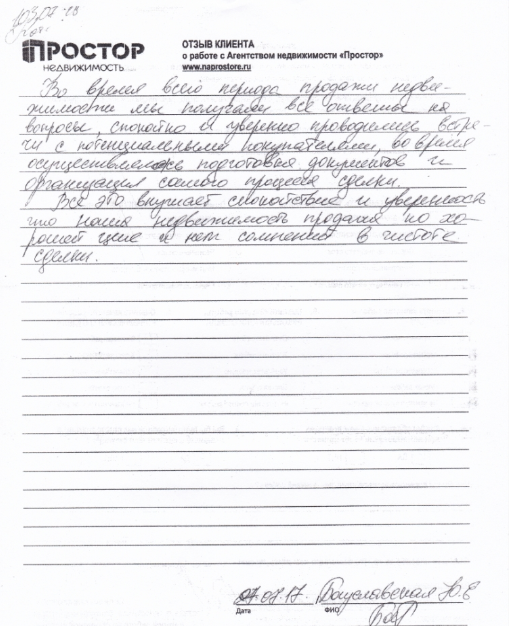 ПРОСТОР
НЕДВИЖИМОСТЬ
ОТЗЫВ КЛИЕНТА
о работе с Агентством недвижимости «Простор»
www.naprostore.ru
Во время всего периода продажи недви-
жимости мы получали все ответы на
вопросы, спокойно и уверенно проводились встре-
чи с потенциальными покупателями, во время
осуществлялась подготовка документов и
организация самого процесса сделки.
Все это внушает спокойствие и уверенность
что наша недвижимость продана по хо-
рошей цене и нет сомнений в чистоте
сделки.
07.07.17. Бауславская Ю.Е
Дата ФИО